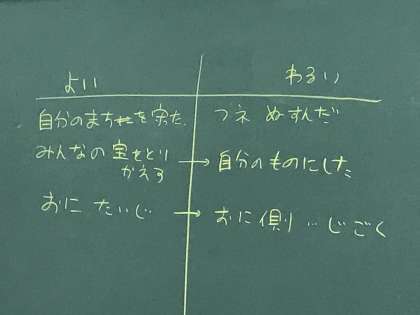 よい
わるい
自分のまちを守った
フネ ぬすんだ
みんなの宝をとり
かえす
→ 自分のものにした
おに たいじ
→ おに側 … じごく